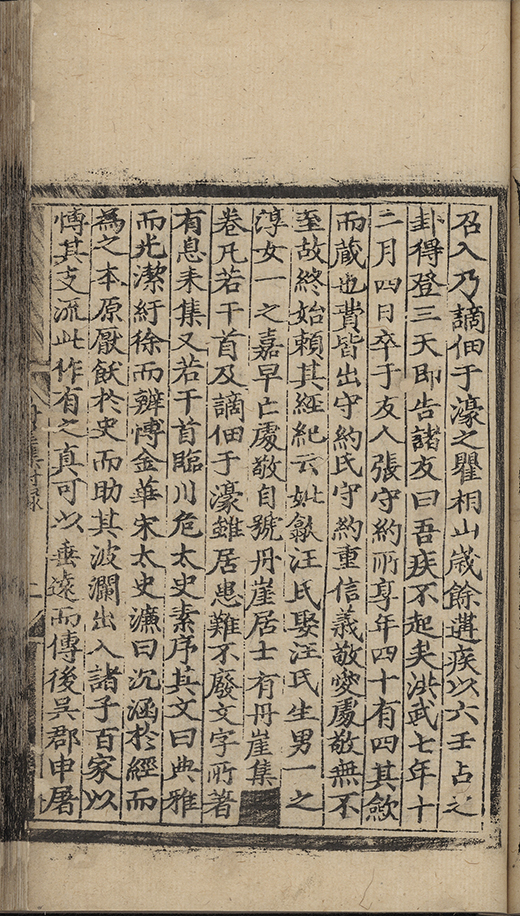 召入乃謫佃于濠之瞿相山歳餘遘疾以六壬占之
卦得登三天即告諸友曰吾疾不起矣洪武七年十
二月四日卒于友人張守約所享年四十有四其斂
而蔵也費皆出守約氏守約重信義敬愛處敬無不
至故終始頼其經紀云妣歙汪氏娶汪氏生男一之
淳女一之嘉早亡處敬自號丹崖居士有丹崖集
卷凡若干首及謫佃于濠雖居患難不廢文字所著
有息耒集又若干首臨川危太史素序其文曰典雅
而光潔紆徐而辨愽金華宋太史濂曰沉涵於經而
為之本原厭飫於史而助其波瀾出入諸子百家以
愽其支流此作有之真可以垂遠而傳後吳郡申屠